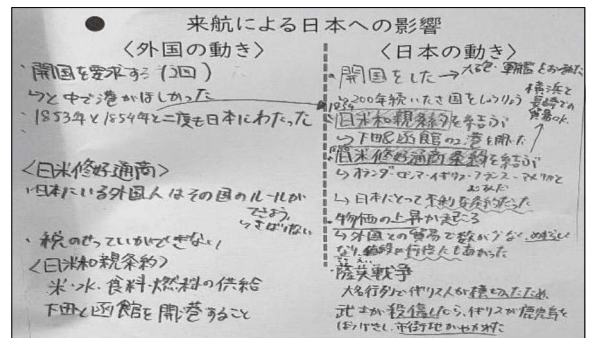 来航による日本への影響
〈外国の動き〉
・開国を要求する
↳と中で港がほしかった
・1853年と1854年と二度も日本にわたった
〈日米修好通商〉
・日本にいる外国人はその国のルールが
・税のせっていができない
〈日米和親条約〉
米・水・食料・燃料の供給
下田と函館を開港すること
〈日本の動き〉
・開国をした→
横浜と
長崎での
1854
↳200年続いたさ国をしゅうりょう
日米和親条約を結ぶ
↳下田&函館の2港を開いた
日米修好通商条約を結ぶ
↳オランダ・ロシア・イギリス・フランス・アメリカと
↳日本にとって不利な条約だった
物価の上昇が起こる
↳外国との貿易で数が少なく
なり、値段が何倍にもあがった
・薩英戦争
大名行列でイギリス人が横切ったため、
武士が殺傷したら、イギリスが鹿児島を
市街地がやかれた